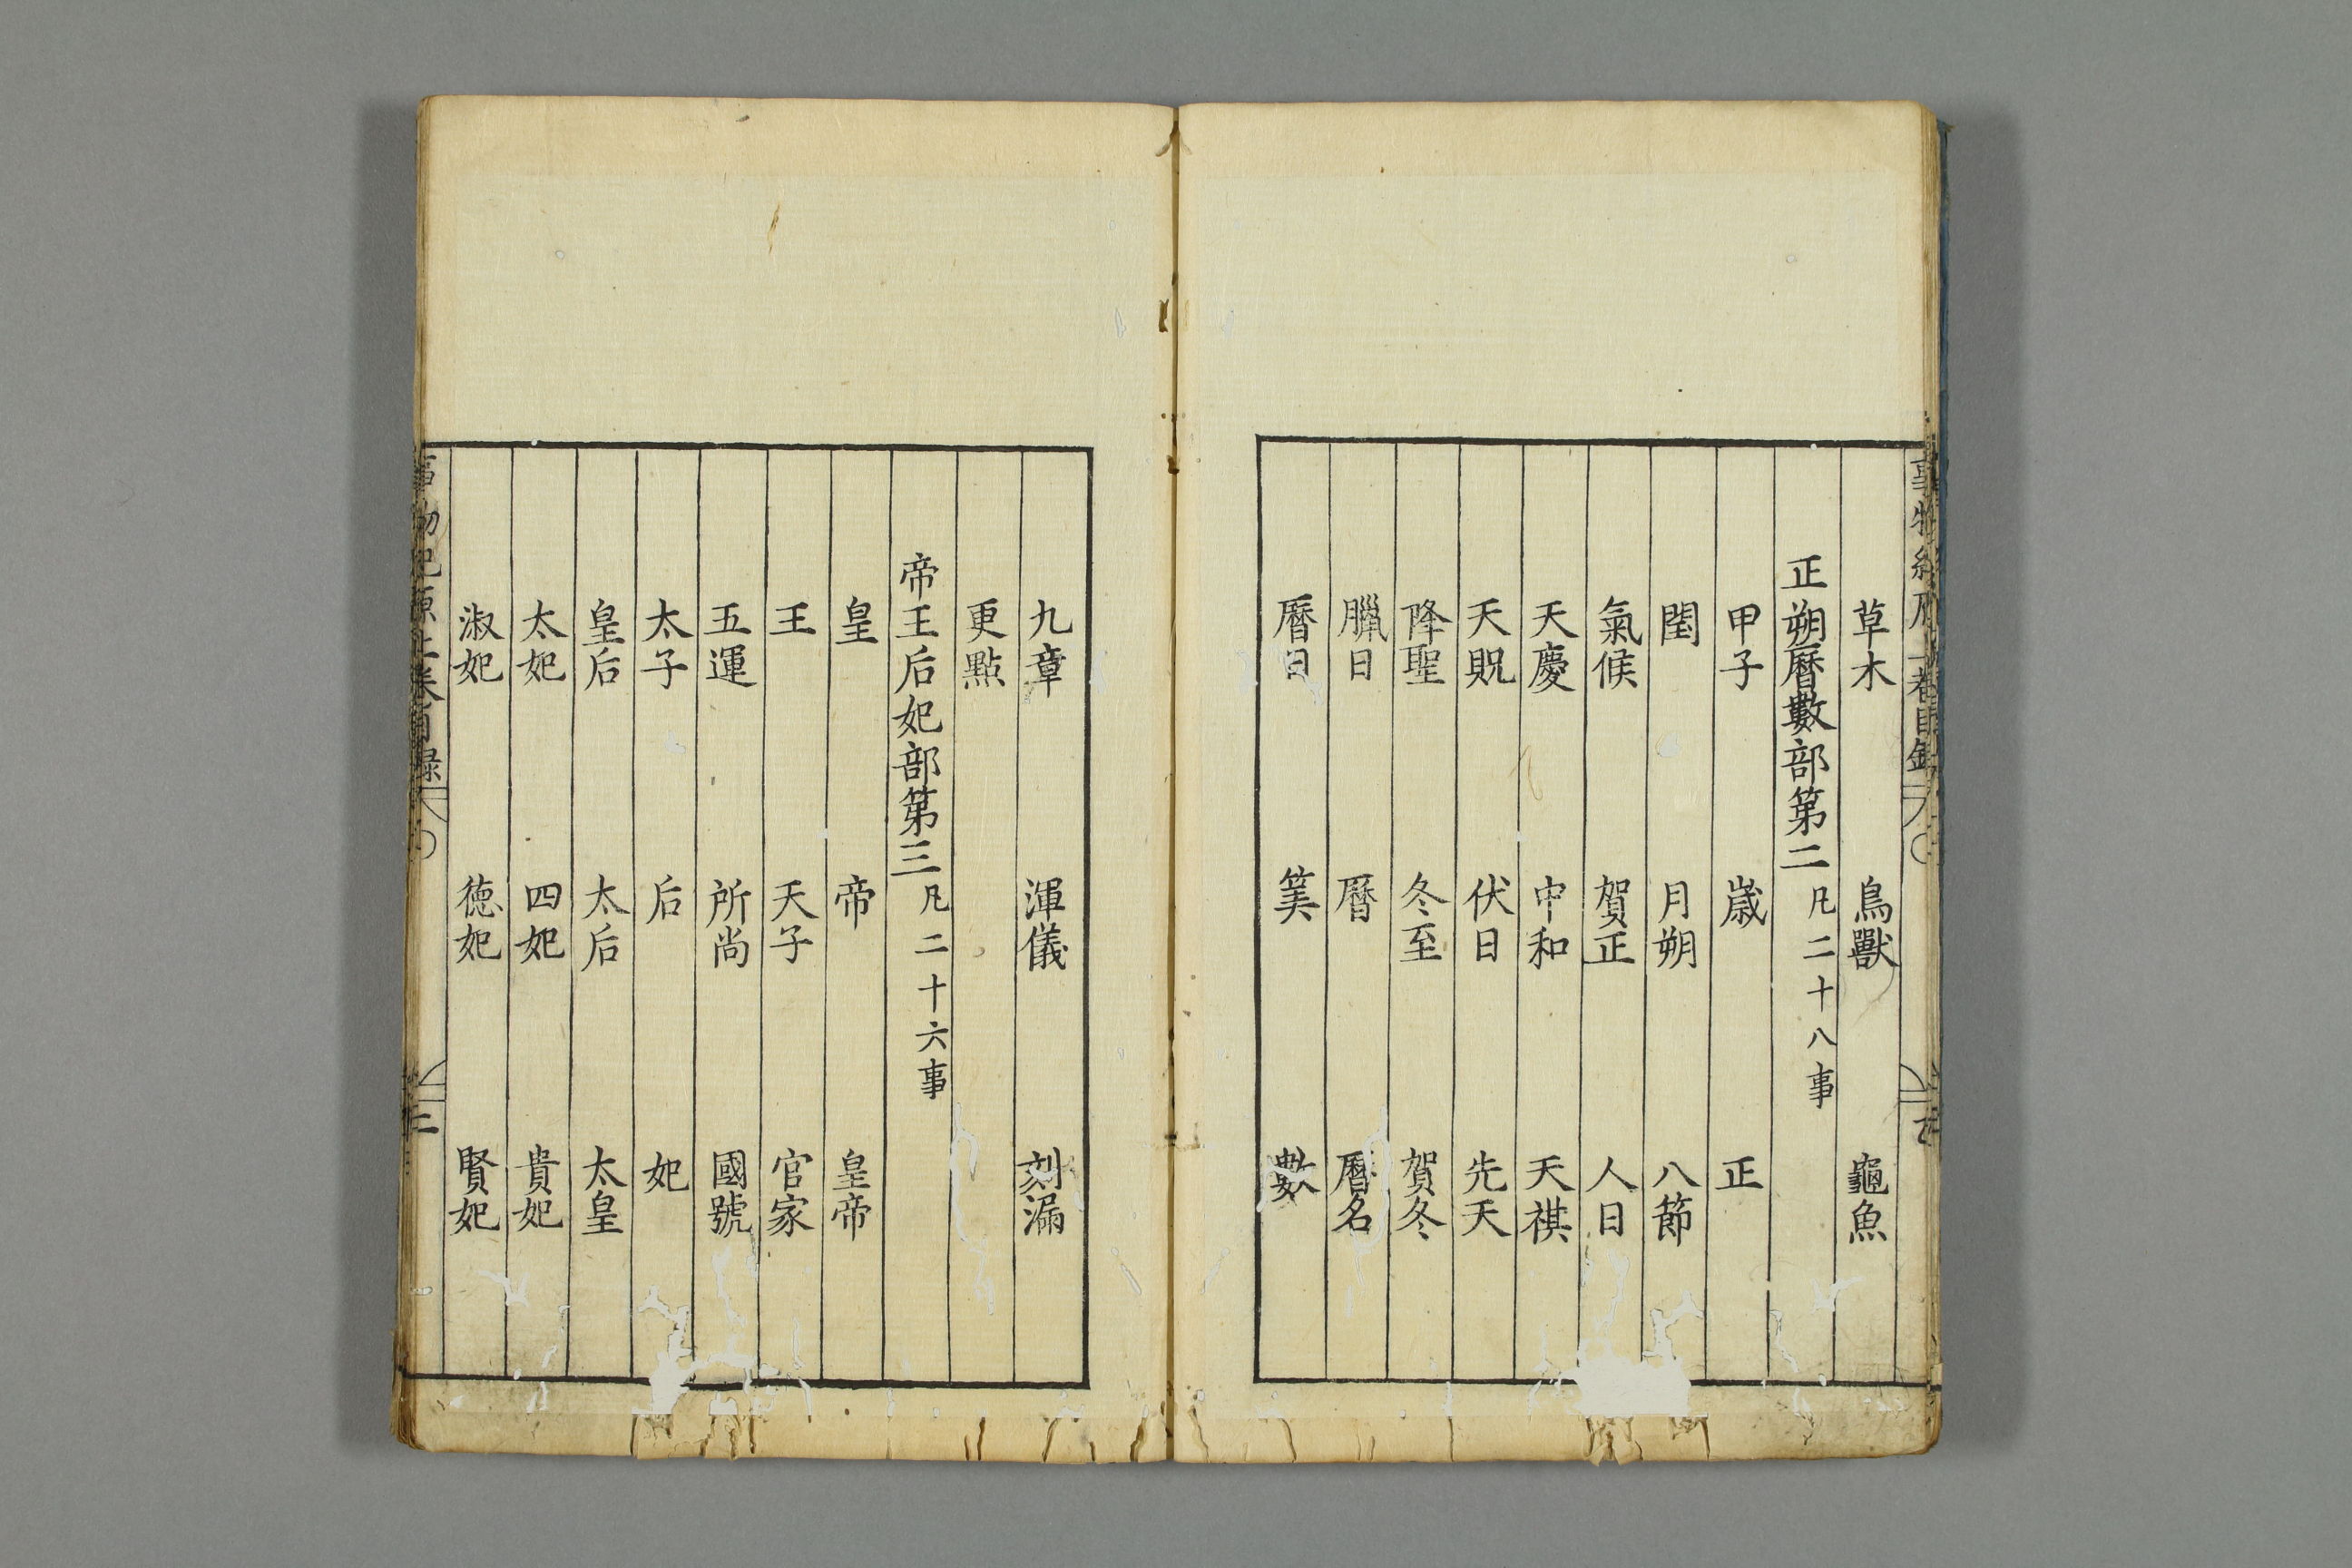 草木 鳥獸 龜魚
正朔曆數部第二 凡二十八事
甲子 歲 正
閏 月朔 八節
氣候 賀正 人日
天慶 中和 天祺
天貺 伏日 先天
降聖 冬至 賀冬
臘日 曆 曆名
曆日 筭 數
九章 渾儀 刻漏
更點
帝王后妃部第三 凡二十六事
皇 帝 皇帝
王 天子 官家
五運 所尚 國號
太子 后 妃
皇后 太后 太皇
太妃 四妃 貴妃
淑妃 德妃 賢妃